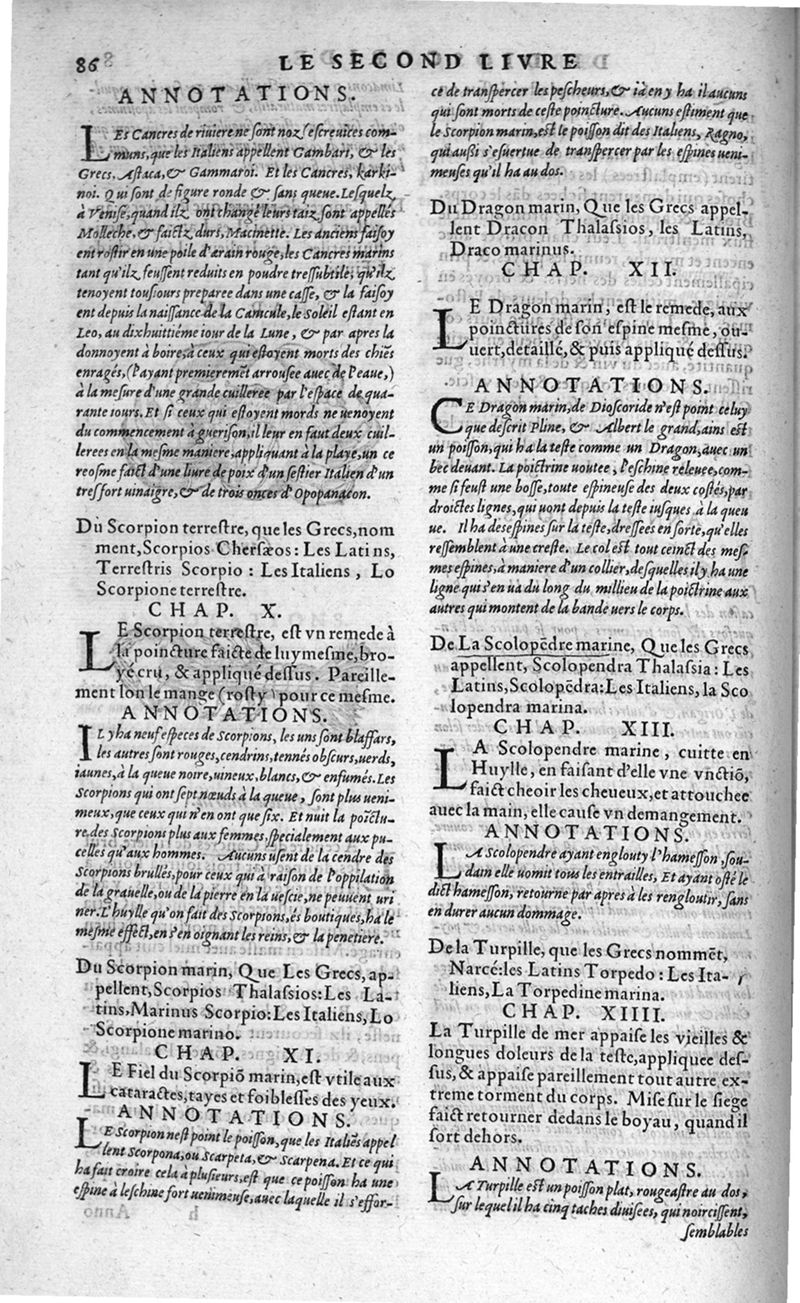 86
LE SECOND LIVRE
ANNOTATIONS.
LEs Cancres de riuiere ne sont noz escreuices com-
muns, que les Italiens appellent Gambari, & les
Grecs, Astaca, & Gammaroi. Et les Cancres, karki-
noi. Qui sont de figure ronde & sans queue. Lesquelz
à Venise, quand ilz ont changé leurs taiz sont appellés
Molleche, & faictz durs, Macinette. Les anciens faisoy
ent rostir en une poile d'arain rouge, les Cancres marins
tant qu'ilz feussent reduits en poudre tressubtile, qu'ilz
tenoyent tousiours preparee dans une casse, & la faisoy
ent depuis la naissance de la Canicule, le Soleil estant en
Leo, au dixhuittiéme iour de la Lune, & par apres la
donnoyent à boire, à ceux qui estoyent morts des chiēs
enragés, (l'ayant premieremēt arrousee auec de l'eaue,)
à la mesure d'une grande cuilleree par l'espace de qua-
rante iours. Et si ceux qui estoyent mords ne uenoyent
du commencement à guerison, il leur en faut deux cuil-
lerees en la mesme maniere, appliquant à la playe, un ce
reosme faict d'une liure de poix d'un sestier Italien d'un
tresfort uinaigre, & de trois onces d'Opopanacon.
Du Scorpion terrestre, que les Grecs, nom
ment, Scorpios Chersæos: Les Latins,
Terrestris Scorpio: Les Italiens, Lo
Scorpione terrestre.
CHAP. X.
LE Scorpion terrestre, est vn remede à
la poincture faicte de luymesme, bro-
yé cru, & appliqué dessus. Pareille-
ment lon le mange (rosty) pour ce mesme.
ANNOTATIONS.
IL y ha neuf especes de Scorpions, les uns sont blaffars,
les autres sont rouges, cendrins, tennés obscurs, uerds,
iaunes, à la queue noire, uineux, blancs, & enfumés. Les
Scorpions qui ont sept nœuds à la queue, sont plus ueni-
meux, que ceux qui n'en ont que six. Et nuit la poīctu-
re, des Scorpions plus aux femmes, specialement aux pu-
celles qu'aux hommes. Aucuns usent de la cendre des
Scorpions brullés, pour ceux qui à raison de l'oppilation
de la grauelle, ou de la pierre en la uescie, ne peuuent uri
ner. L'huylle qu'on fait des Scorpions, és boutiques, ha le
mesme effect, en s'en oignant les reins, & la penetiere.
Du Scorpion marin, Que Les Grecs, ap-
pellent, Scorpios Thalassios: Les La-
tins, Marinus Scorpio: Les Italiens, Lo
Scorpione marino.
CHAP. XI.
LE Fiel du Scorpiō marin, est vtile aux
cataractes, tayes et foiblesses des yeux.
ANNOTATIONS.
LE Scorpion nest point le poisson, que les Italiēs appel
lent Scorpona, ou Scarpeta, & Scarpena. Et ce qui
ha fait croire cela à plusieurs, est que ce poisson ha une
espine à leschine fort uenimeuse, auec laquelle il s'effor-
ce de transpercer les pescheurs, & ià en y ha il aucuns
qui sont morts de ceste poincture. Aucuns estiment que
le Scorpion marin, est le poisson dit des Italiens, Ragno,
qui aussi s'esuertue de transpercer par les espines ueni-
meuses qu'il ha au dos.
Du Dragon marin, Que les Grecs appel-
lent Dracon Thalassios, les Latins,
Draco marinus.
CHAP. XII.
LE Dragon marin, est le remede, aux
poinctures de son espine mesme, ou-
uert, detaillé, & puis appliqué dessus.
ANNOTATIONS.
CE Dragon marin, de Dioscoride n'est point celuy
que descrit Pline, & Albert le grand, ains est
un poisson, qui ha la teste comme un Dragon, auec un
bec deuant. La poictrine uoutee, l'eschine releuee, com-
me si feust une bosse, toute espineuse des deux costés, par
droictes lignes, qui uont depuis la teste iusques à la queu
ue. Il ha des espines sur la teste, dressees en sorte, qu'elles
ressemblent à une creste. Le col est tout ceinct des mes-
mes espines, à maniere d'un collier, desquelles il y ha une
ligne qui s'en ua du long du millieu de la poictrine aux
autres qui montent de la bande uers le corps.
De La Scolopēdre marine, Que les Grecs
appellent, Scolopendra Thalassia: Les
Latins, Scolopēdra: Les Italiens, la Sco
lopendra marina.
CHAP. XIII.
LA Scolopendre marine, cuitte en
Huylle, en faisant d'elle vne vnctiō,
faict cheoir les cheueux, et attouchee
auec la main, elle cause vn demangement.
ANNOTATIONS.
LA Scolopendre ayant englouty l'hamesson, sou-
dain elle uomit tous les entrailles, Et ayant osté le
dict hamesson, retourne par apres à les rengloutir, sans
en durer aucun dommage.
De la Turpille, que les Grecs nommēt,
Narcé: les Latins Torpedo: Les Ita-
liens, La Torpedine marina.
CHAP. XIIII.
La Turpille de mer appaise les vieilles &
longues doleurs de la teste, appliquee des-
sus, & appaise pareillement tout autre ex-
treme torment du corps. Mise sur le siege
faict retourner dedans le boyau, quand il
sort dehors.
ANNOTATIONS.
LA Turpille est un poisson plat, rougeastre au dos,
sur lequel il ha cinq taches diuisees, qui noircissent,
semblables